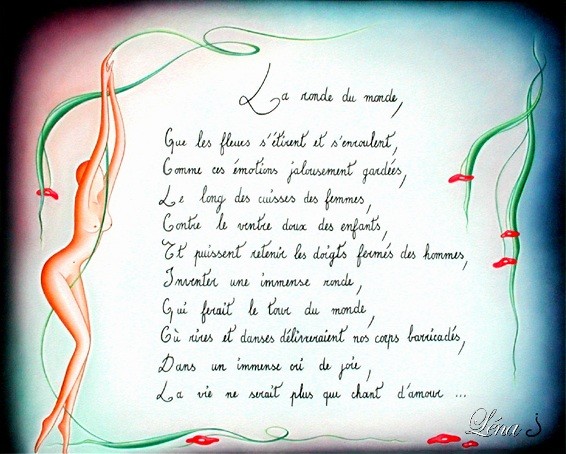 La ronde du monde,
Que les fleurs s'étirent et s'enroulent,
Comme ces émotions jalousement gardées,
Le long des cuisses des femmes,
Contre le ventre doux des enfants,
Et puissent retenir les doigts fermés des hommes,
Inventer une immense ronde,
Qui ferait le tour du monde,
Où rires et danses délivreraient nos corps barricadés,
Dans un immense cri de joie,
La vie ne serait plus que chant d'amour ...
Léna J